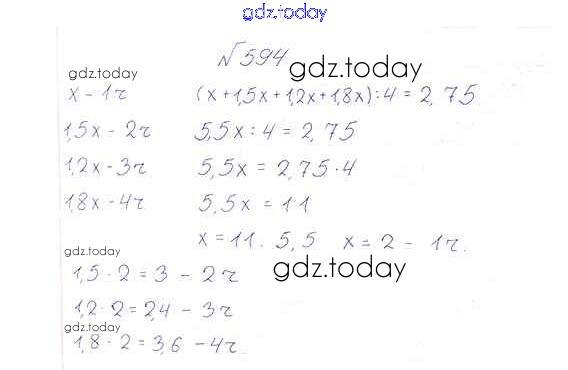 gdz.today
№594
gdz.today
gdz.today
x - 1г (x + 1,5x + 1,2x + 1,8x) : 4 = 2,75
1,5x - 2г 5,5x : 4 = 2,75
1,2x - 3г 5,5x = 2,75 · 4
1,8x - 4г. 5,5x = 11
x = 11 : 5,5 x = 2 - 1г.
gdz.today
gdz.today
1,5 · 2 = 3 - 2г
1,2 · 2 = 2,4 - 3г
gdz.today
1,8 · 2 = 3,6 - 4г.